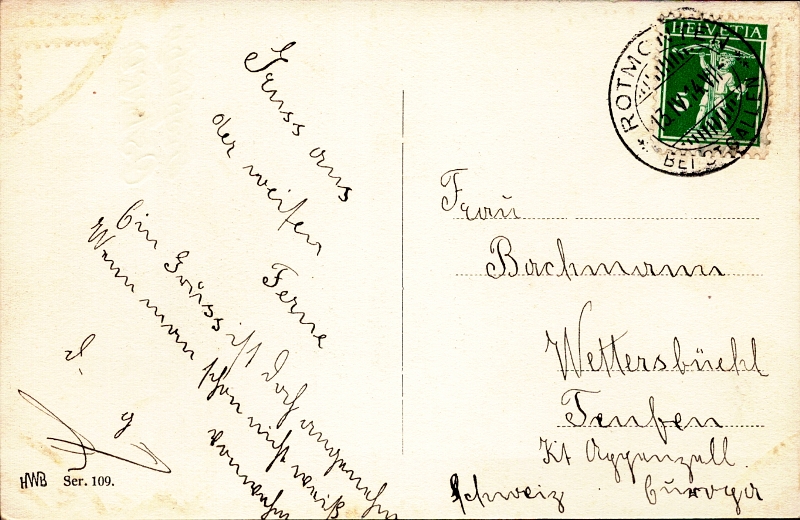 Gruss aus
der weiten
Ferne
Ein Grüss ist doch angenehm
Wenn man schon nicht weiß
von wehm
d. g
HWB Ser. 109.
HELVETIA
ROTMONTEN
13.IV.14.VII
BEI ST. GALLEN
Frau
Bachmann
Wettersbüehl
Teufen
Kt Appenzell.
Schweiz Europa